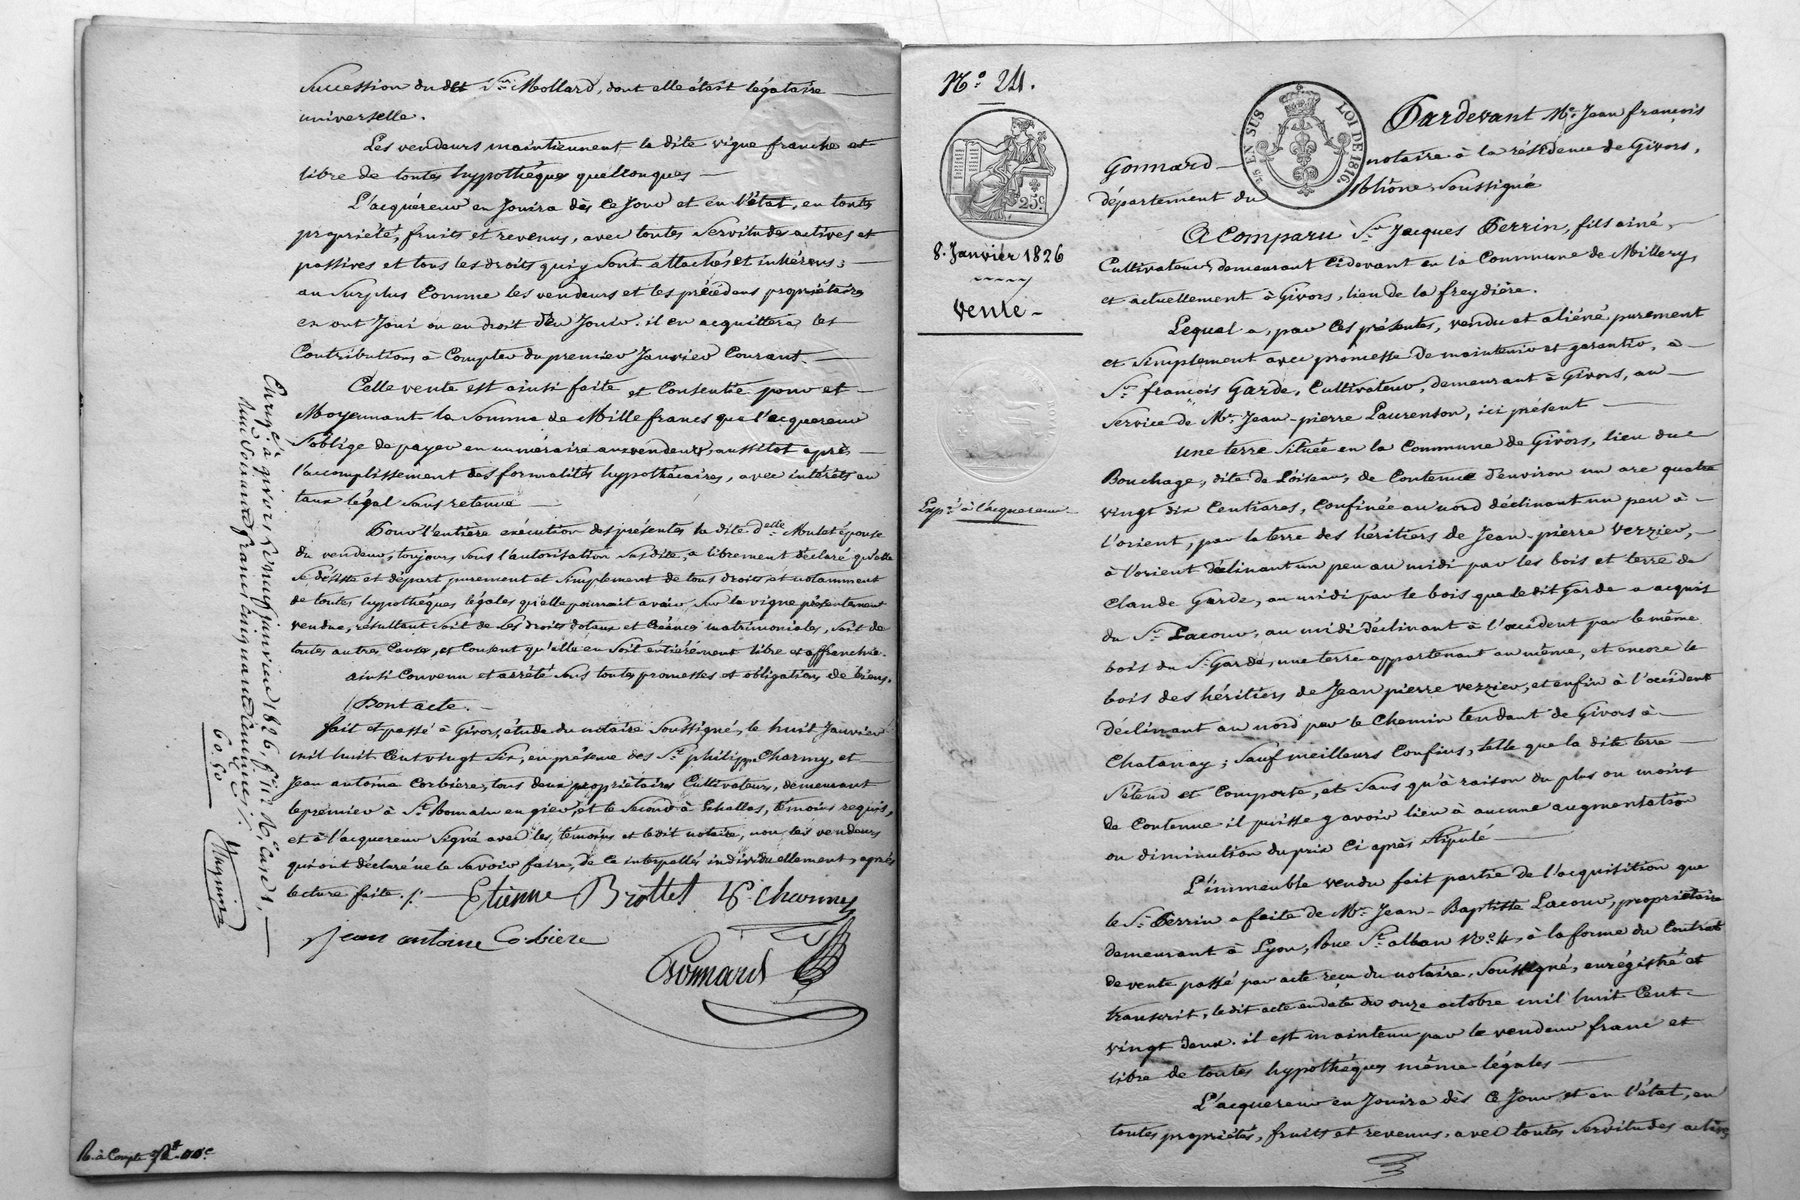 Succession du dit Sr. Mollard, dont elle était légataire
universelle.
Les vendeurs maintiennent la dite vigne franche et
libre de toutes hypothèques quelconques
L'acquéreur en Jouira dès ce Jour et en l'état, en toute
propriété, fruits et revenus, avec toutes servitudes actives et
passives et tous les droits qui y sont attachés et inhérens;
au surplus comme les vendeurs et les précédens propriétaires
en ont Joui ou eu droit d'en Jouir. il en acquittera les
Contributions à Compter du premier Janvier Courant.
Cette vente est ainsi faite et Consentie pour et
Moyennant la Somme de Mille francs que l'acquereur
s'oblige de payer en numéraire aux vendeurs, aussitot après
l'accomplissement des formalités hypothécaires, avec intérêts au
taux légal sans retenue
Pour l'entière exécution des présentes la dite delle Moulat épouse
du vendeur, toujours sous l'autorisation susdite, a librement déclaré qu'elle
se désiste et départ purement et simplement de tous droits et notamment
de toutes hypothèques légales qu'elle pourrait avoir sur la vigne présentement
vendue, résultant soit de ses droits dotaux et Créances matrimoniales, soit de
toutes autres Causes, et Consent qu'elle en soit entièrement libre et affranchie.
ainsi Convenu et arrêté sous toutes promesses et obligations de biens.
Dont acte.
fait et passé à Givors, étude du notaire soussigné, le huit Janvier
mil huit Cent vingt Six, en présence des Srs. philippe Charmy, et
Jean antoine Corbière, tous deux propriétaires Cultivateurs, demeurant
le premier à St. Romain en gier, et le second à Echallas, témoins requis,
et à l'acquereur signé avec les témoins et ledit notaire, non les vendeurs
qui ont déclaré ne le savoir faire, de ce interpellés individuellement, après
lecture faite ./.
Etienne Brottet
P. Charmy
Jean antoine Corbiere
Gonnard
à givors le neuf janvier 1826, fo.
Reçu Soixante francs Cinquante Centimes
60.50
R. à Compte
No. 24.
25 C.
8. Janvier 1826
Vente
Expé. à l'acquereur
25 EN SUS
LOI DE 1816.
Pardevant Me. Jean françois
Gonnard notaire à la résidence de Givors,
département du Rhône, Soussigné
A Comparu Sr. Jacques Perrin, fils ainé,
Cultivateur, demeurant Cidevant en la Commune de Millery,
et actuellement à Givors, lieu de la freydière.
Lequel a, par ces présentes, vendu et aliéné purement
et simplement avec promesse de maintenir et garantir, à
Sr. françois Garde, Cultivateur, demeurant à Givors, au
service de Mr. Jean-pierre Laurenson, ici présent
une terre située en la Commune de Givors, lieu du
Bouchage, dite de Loiseau, de Contenue d'environ un are quatre
vingt dix Centiares, Confinée au nord déclinant un peu à
l'orient, par la terre des héritiers de Jean-pierre Verzier,
à l'orient déclinant un peu au midi par les bois et terre de
Claude Garde, au midi par le bois que le dit Garde a acquis
du Sr. Lacour; au midi déclinant à l'occident par le même
bois du Sr. Garde, une terre appartenant au même, et encore le
bois des héritiers de Jean pierre verzier, et enfin à l'occident
déclinant au nord par le Chemin tendant de Givors à
Chatanay; sauf meilleurs Confins, telle que la dite terre
s'étend et Comporte, et sans qu'à raison du plus ou moins
de Contenue il puisse y avoir lieu à aucune augmentation
ou diminution du prix Ci après stipulé
L'immeuble vendu fait partie de l'acquisition que
le Sr. Perrin a faite de Mr. Jean-Baptiste Lacour, propriétaire
demeurant à Lyon, Rue St. alban No. 4, à la forme du Contrat
de vente passé par acte reçu du notaire Soussigné, enrégistré et
transcrit, ledit acte en date du onze octobre mil huit Cent
vingt deux. il est maintenu par le vendeur franc et
libre de toutes hypothèques même légales
L'acquereur en Jouira dès ce Jour et en l'état, en
toutes propriétés, fruits et revenus, avec toutes servitudes actives